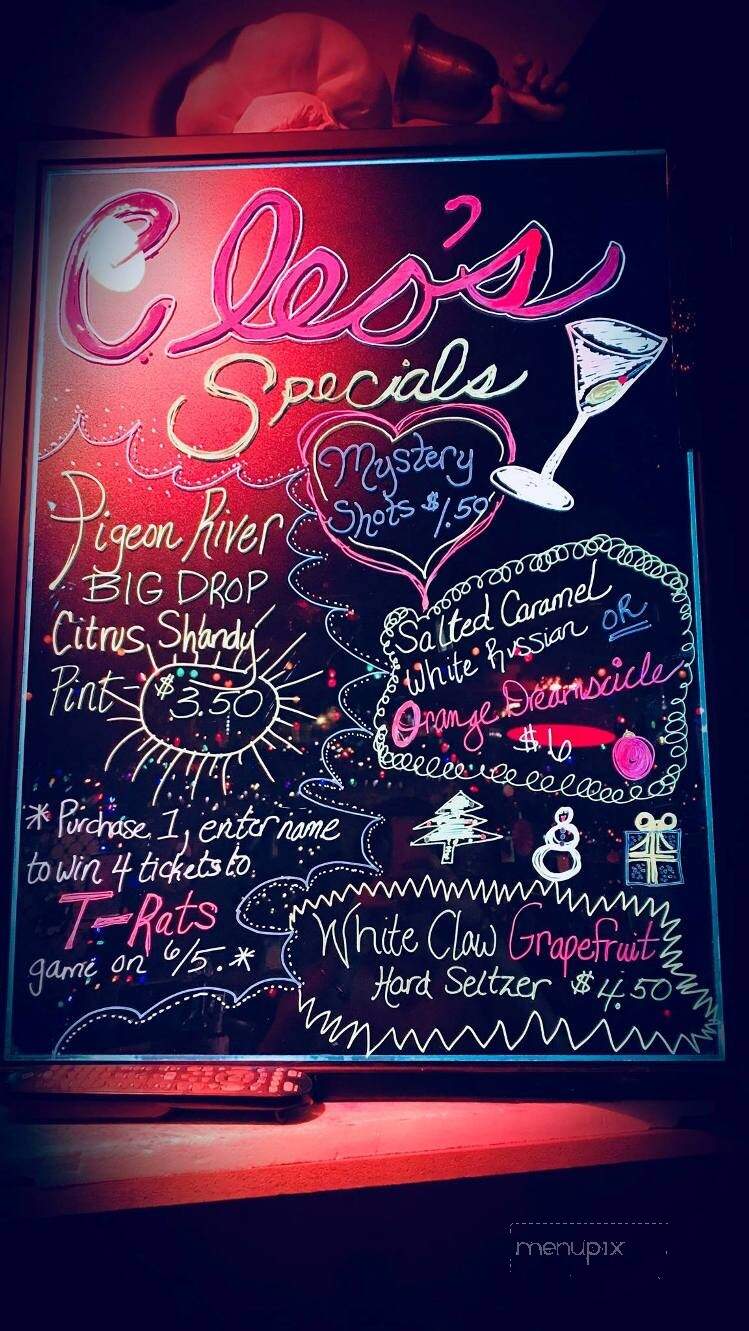 Cleo's
Specials
Mystery
Shots $1.50
Pigeon River
BIG DROP
Citrus Shandy
Pint - $3.50
Salted Caramel
White Russian OR
Orange Dreamscicle
$6
* Purchase 1, enter name
to win 4 tickets to
T-Rats
game on 6/5. *
White Claw Grapefruit
Hard Seltzer $4.50
menupix